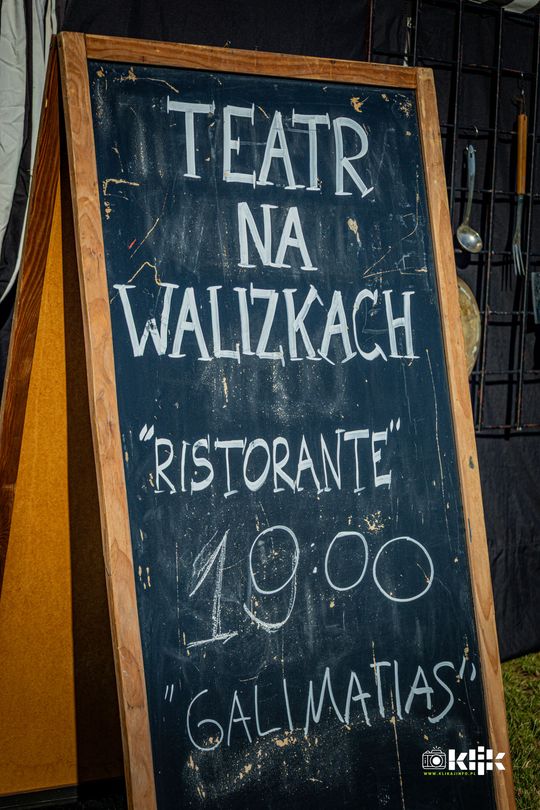 TEATR
NA
WALIZKACH
"RISTORANTE"
19:00
"GALIMATIAS"
klik
WWW.KLIKAJINFO.PL